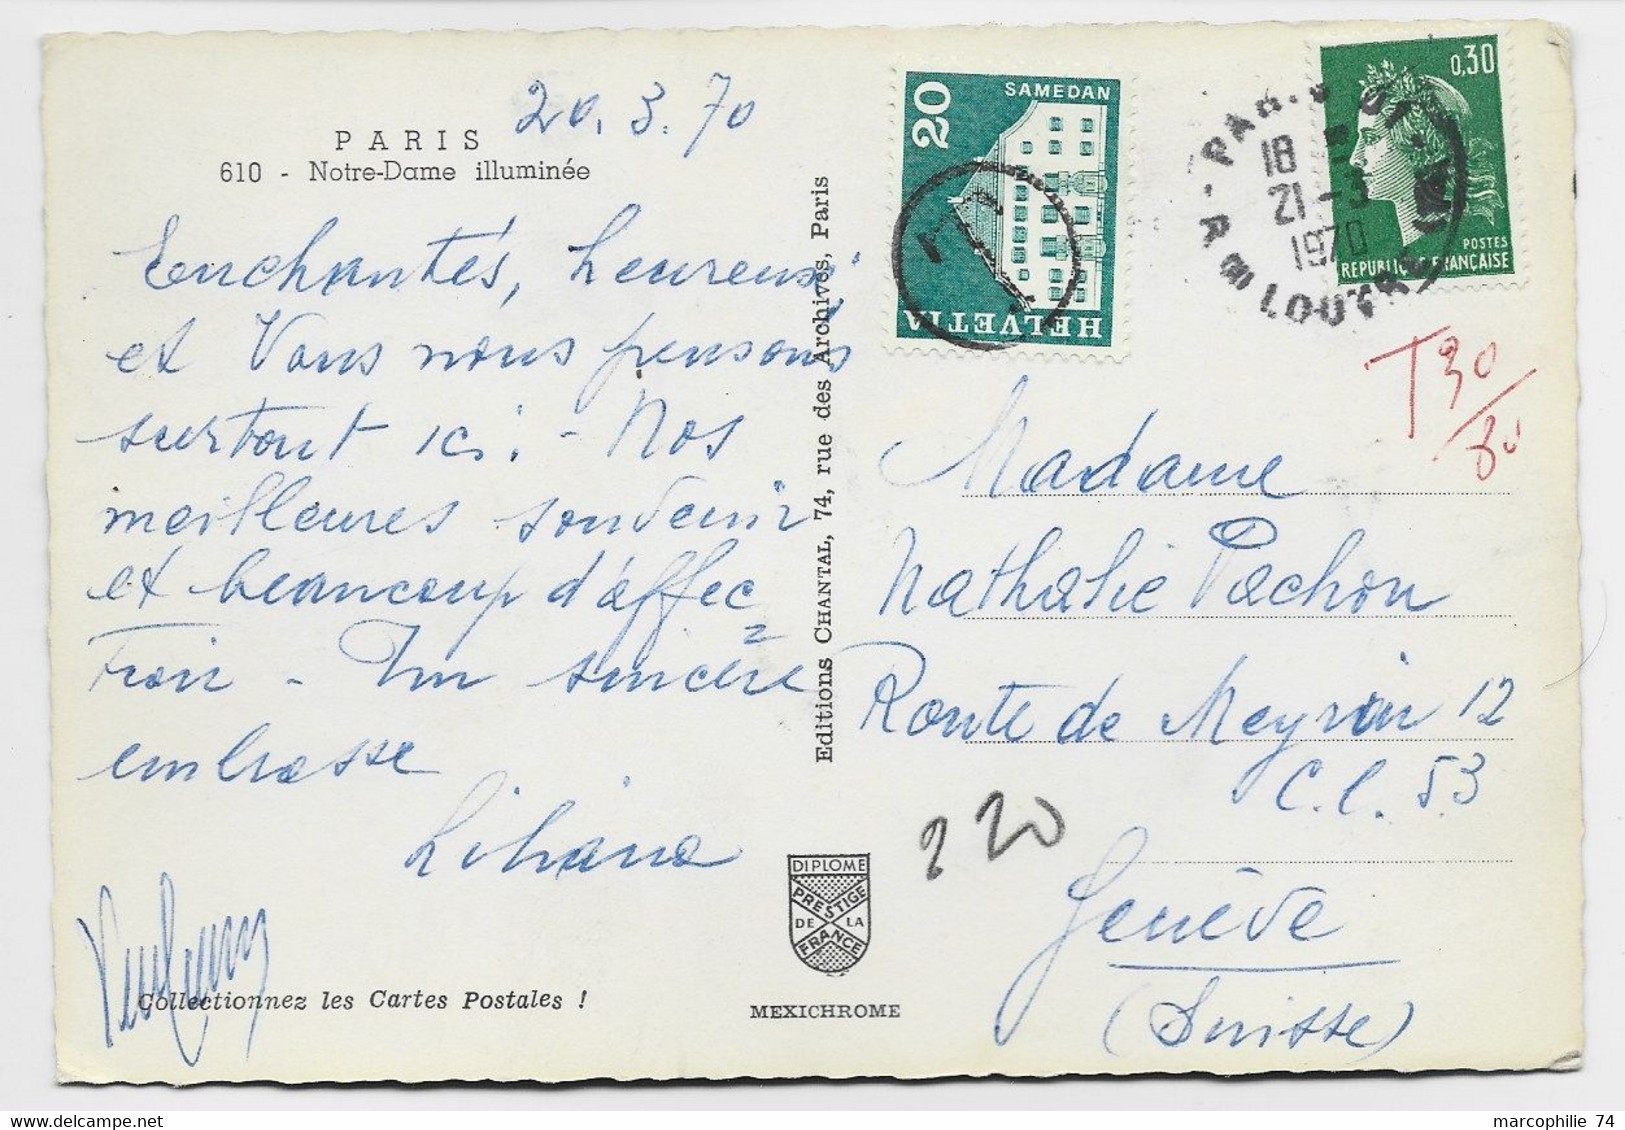 PARIS
20.3.70
610 - Notre-Dame illuminée
Enchantés, heureux
et Vous nous pensons
surtout ici. - Nos
meilleures souvenir
et beaucoup d'affec
tion - Um sincère
embrasse
Liliane
Collectionnez les Cartes Postales !
Editions CHANTAL, 74, rue des Archives, Paris
DIPLOME
PRESTIGE
DE LA
FRANCE
MEXICHROME
20
SAMEDAN
HELVETIA
T
PARIS 01
18
21-3
1970
R. DU LOUVRE
0,30
POSTES
REPUBLIQUE FRANÇAISE
T 30/80
Madame
Nathalie Pachon
Route de Meyrin 12
C.C. 53
220
Genève
(Suisse)
marcophilie 74